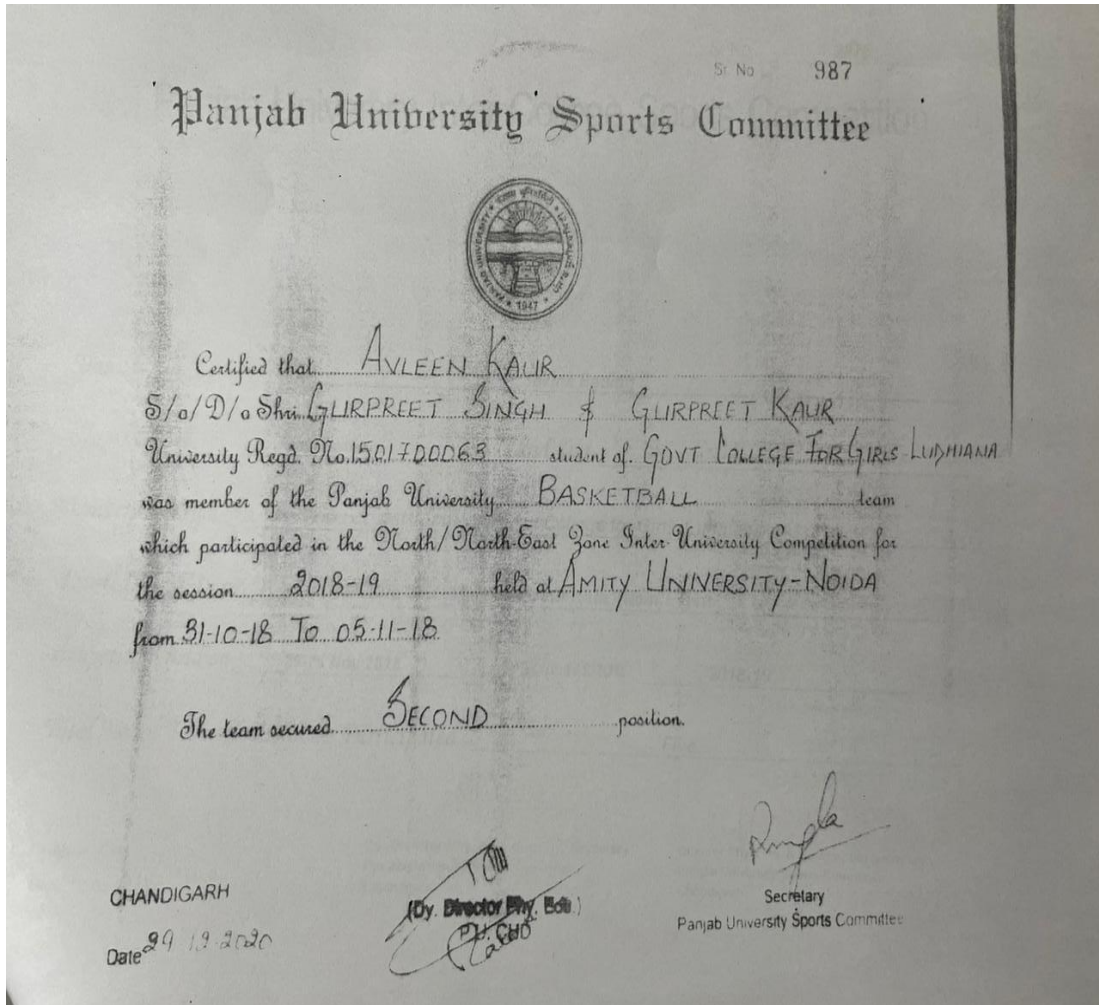 Sr. No 987
Panjab University Sports Committee
PANJAB UNIVERSITY
1947
Certified that AVLEEN KAUR
S/o/D/o Shri GURPREET SINGH & GURPREET KAUR
University Regd. No. 15017000063 student of GOVT COLLEGE FOR GIRLS LUDHIANA
was member of the Panjab University BASKETBALL team
which participated in the North/North-East Zone Inter-University Competition for
the session 2018-19 held at AMITY UNIVERSITY-NOIDA
from 31-10-18 To 05-11-18
The team secured SECOND position.
CHANDIGARH
Date 29 12 2020
(Dy. Director Phy. Edu.)
P.U. CHD
Secretary
Panjab University Sports Committee